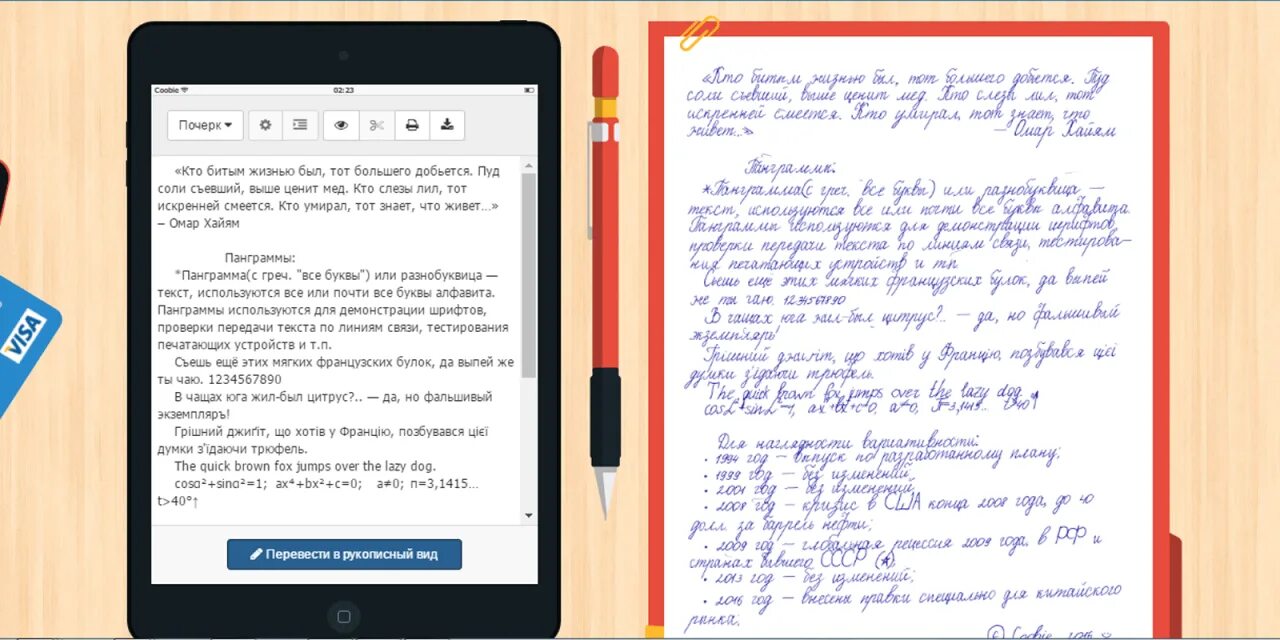 Coobie
02:23
Почерк
«Кто битым жизнью был, тот большего добьется. Пуд
соли съевший, выше ценит мед. Кто слезы лил, тот
искренней смеется. Кто умирал, тот знает, что живет…»
– Омар Хайям
Панграммы:
*Панграмма(с греч. "все буквы") или разнобуквица —
текст, используются все или почти все буквы алфавита.
Панграммы используются для демонстрации шрифтов,
проверки передачи текста по линиям связи, тестирования
печатающих устройств и т.п.
Съешь ещё этих мягких французских булок, да выпей же
ты чаю. 1234567890
В чащах юга жил-был цитрус?.. — да, но фальшивый
экземпляръ!
Грішний джиґіт, що хотів у Францію, позбувався цієї
думки з'їдаючи трюфель.
The quick brown fox jumps over the lazy dog.
cosα²+sinα²=1; ax⁴+bx²+c=0; a≠0; п=3,1415…
t>40°↑
Перевести в рукописный вид
VISA
«Кто битым жизнью был, тот большего добьется. Пуд
соли съевший, выше ценит мед. Кто слезы лил, тот
искренней смеется. Кто умирал, тот знает, что
живет...»
— Омар Хайям
Панграммы:
*Панграмма(с греч. "все буквы") или разнобуквица —
текст, используются все или почти все буквы алфавита.
Панграммы используются для демонстрации шрифтов,
проверки передачи текста по линиям связи, тестирова-
ния печатающих устройств и т.п.
Съешь ещё этих мягких французских булок, да выпей
же ты чаю. 1234567890
В чащах юга жил-был цитрус?.. — да, но фальшивый
экземпляръ!
Грішний джиґіт, що хотів у Францію, позбувався цієї
думки з'їдаючи трюфель.
The quick brown fox jumps over the lazy dog.
cosα²+sinα²=1; ax⁴+bx²+c=0; a≠0; π=3,1415... t>40°↑
Для наглядности вариативности:
• 1994 год — выпуск по разработанному плану;
• 1999 год — без изменений;
• 2001 год — без изменений;
• 2008 год — кризис в США конца 2008 года, до 40
долл. за баррель нефти;
• 2009 год — глобальная рецессия 2009 года, в РФ и
странах бывшего СССР (*);
• 2013 год — без изменений;
• 2016 год — внесены правки специально для китайского
рынка.
© Coobie